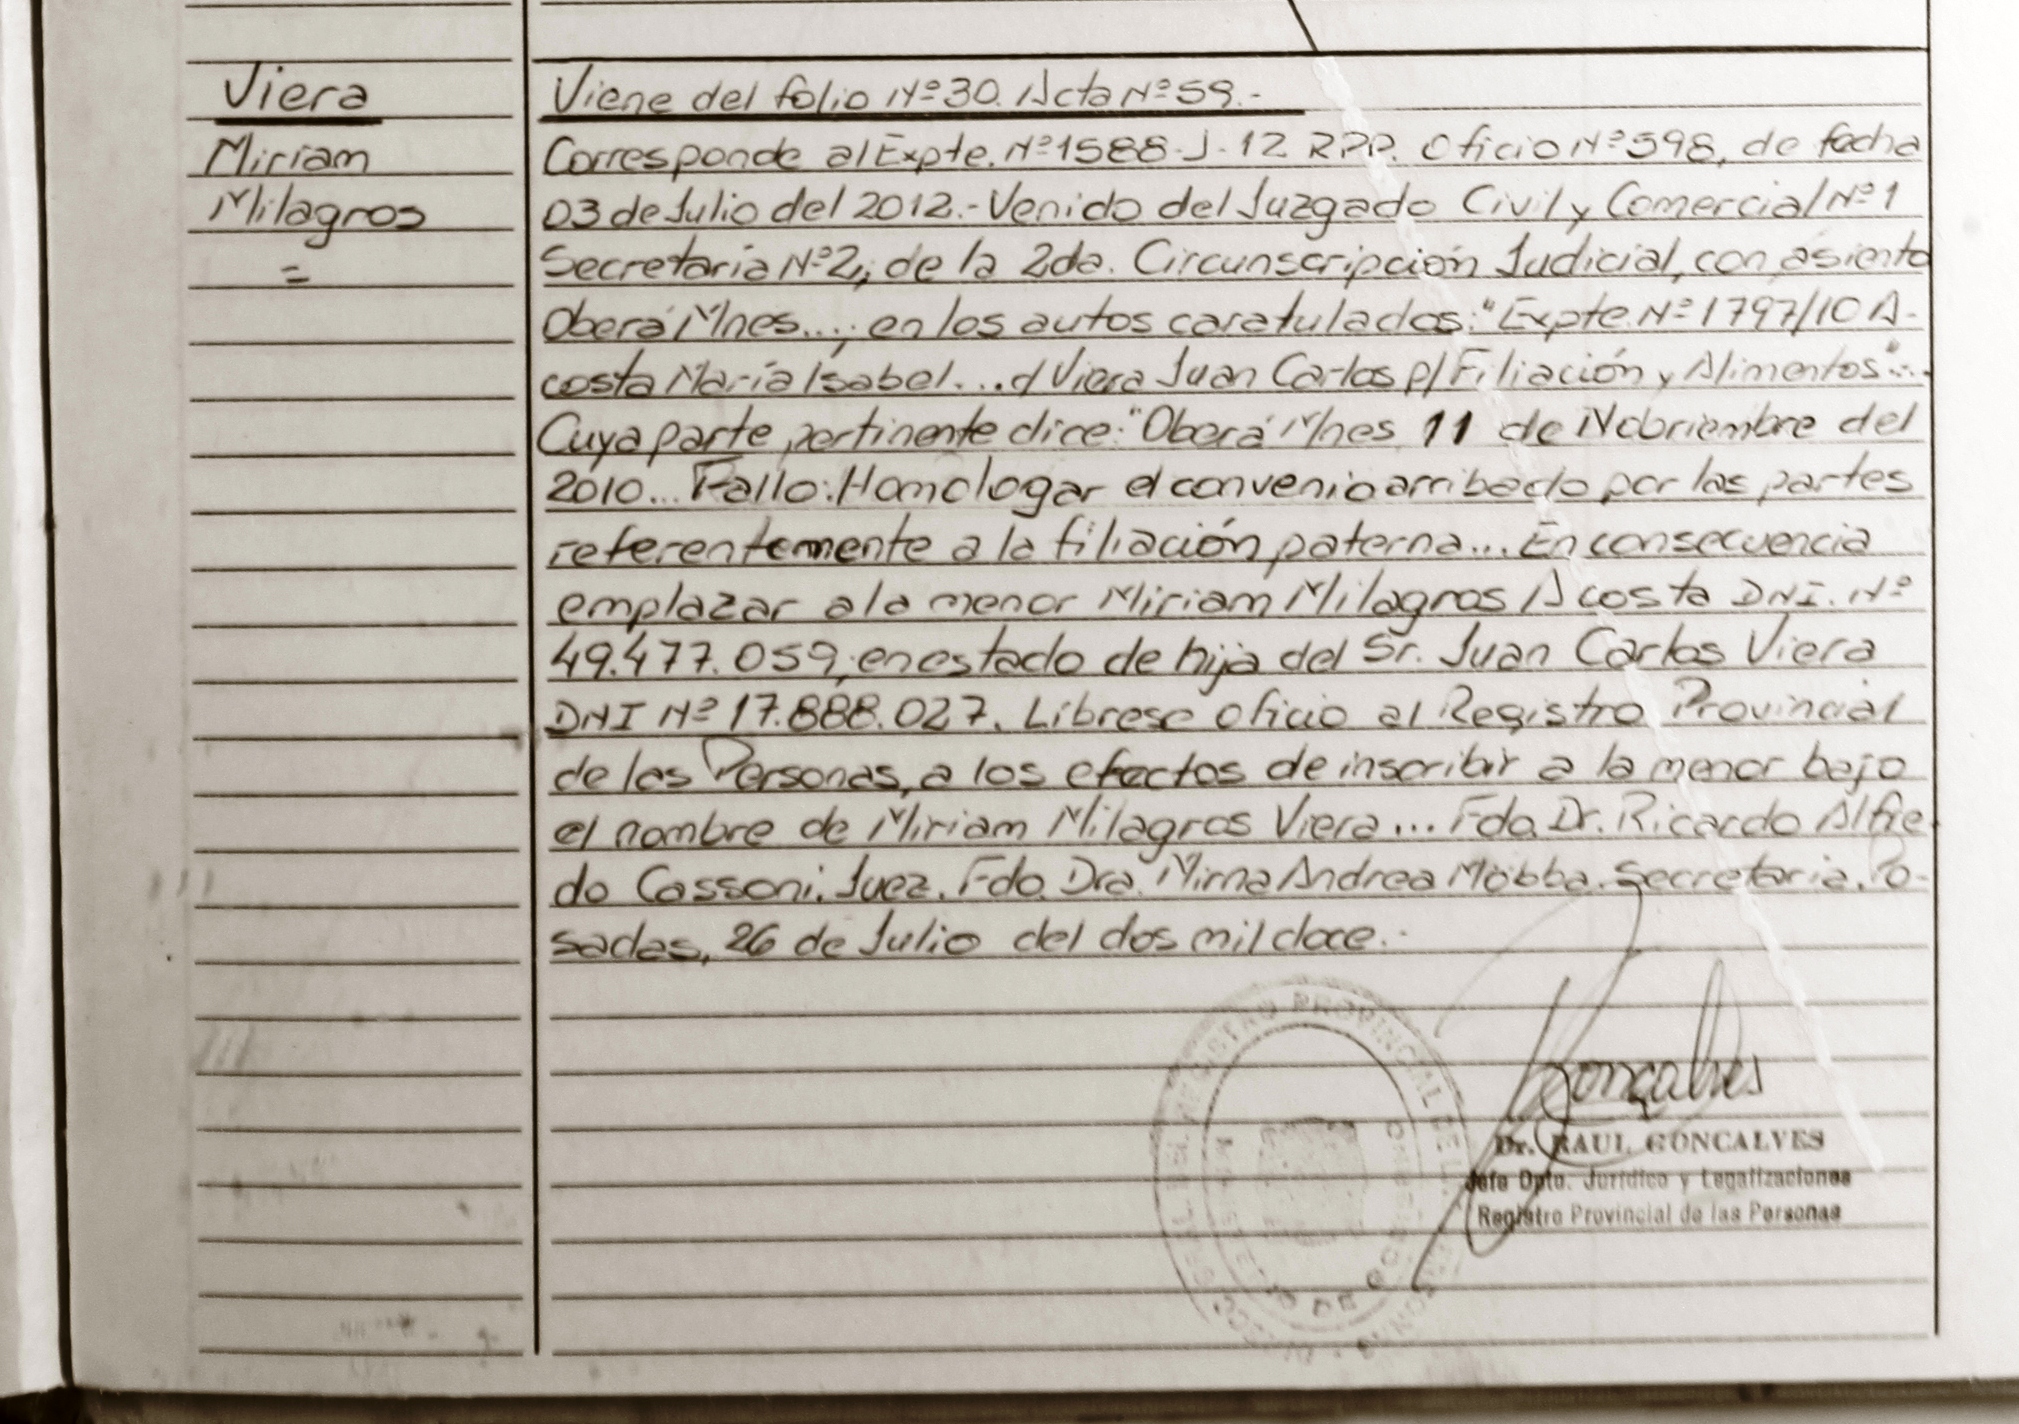 Viera
Miriam
Milagros
=
Viene del folio Nº30. Acta Nº59.-
Corresponde al Expte. Nº1588-J-12 RPP. Oficio Nº598, de fecha
03 de Julio del 2012.- Venido del Juzgado Civil y Comercial Nº1
Secretaria Nº2, de la 2da. Circunscripción Judicial, con asiento
Oberá Mnes...; en los autos caratulados: "Expte. Nº 1797/10 A-
costa María Isabel...c/ Viera Juan Carlos p/ Filiación y Alimentos"...
Cuya parte pertinente dice: "Oberá Mnes 11 de Nobriembre del
2010... Fallo: Homologar el convenio arribado por las partes
referentemente a la filiación paterna... En consecuencia
emplazar a la menor Miriam Milagros Acosta DNI. Nº
49.477.059, en estado de hija del Sr. Juan Carlos Viera
DNI Nº 17.888.027. Líbrese oficio al Registro Provincial
de las Personas, a los efectos de inscribir a la menor bajo
el nombre de Miriam Milagros Viera... Fdo. Dr. Ricardo Alfre
do Cassoni. Juez. Fdo. Dra. Mirna Andrea Mobba. Secretaria. Po-
sadas, 26 de Julio del dos mil doce.-
Gonçalves
Dr. RAUL GONCALVES
Jefe Dpto. Jurídico y Legalizaciones
Registro Provincial de las Personas
REGISTRO PROVINCIAL DE